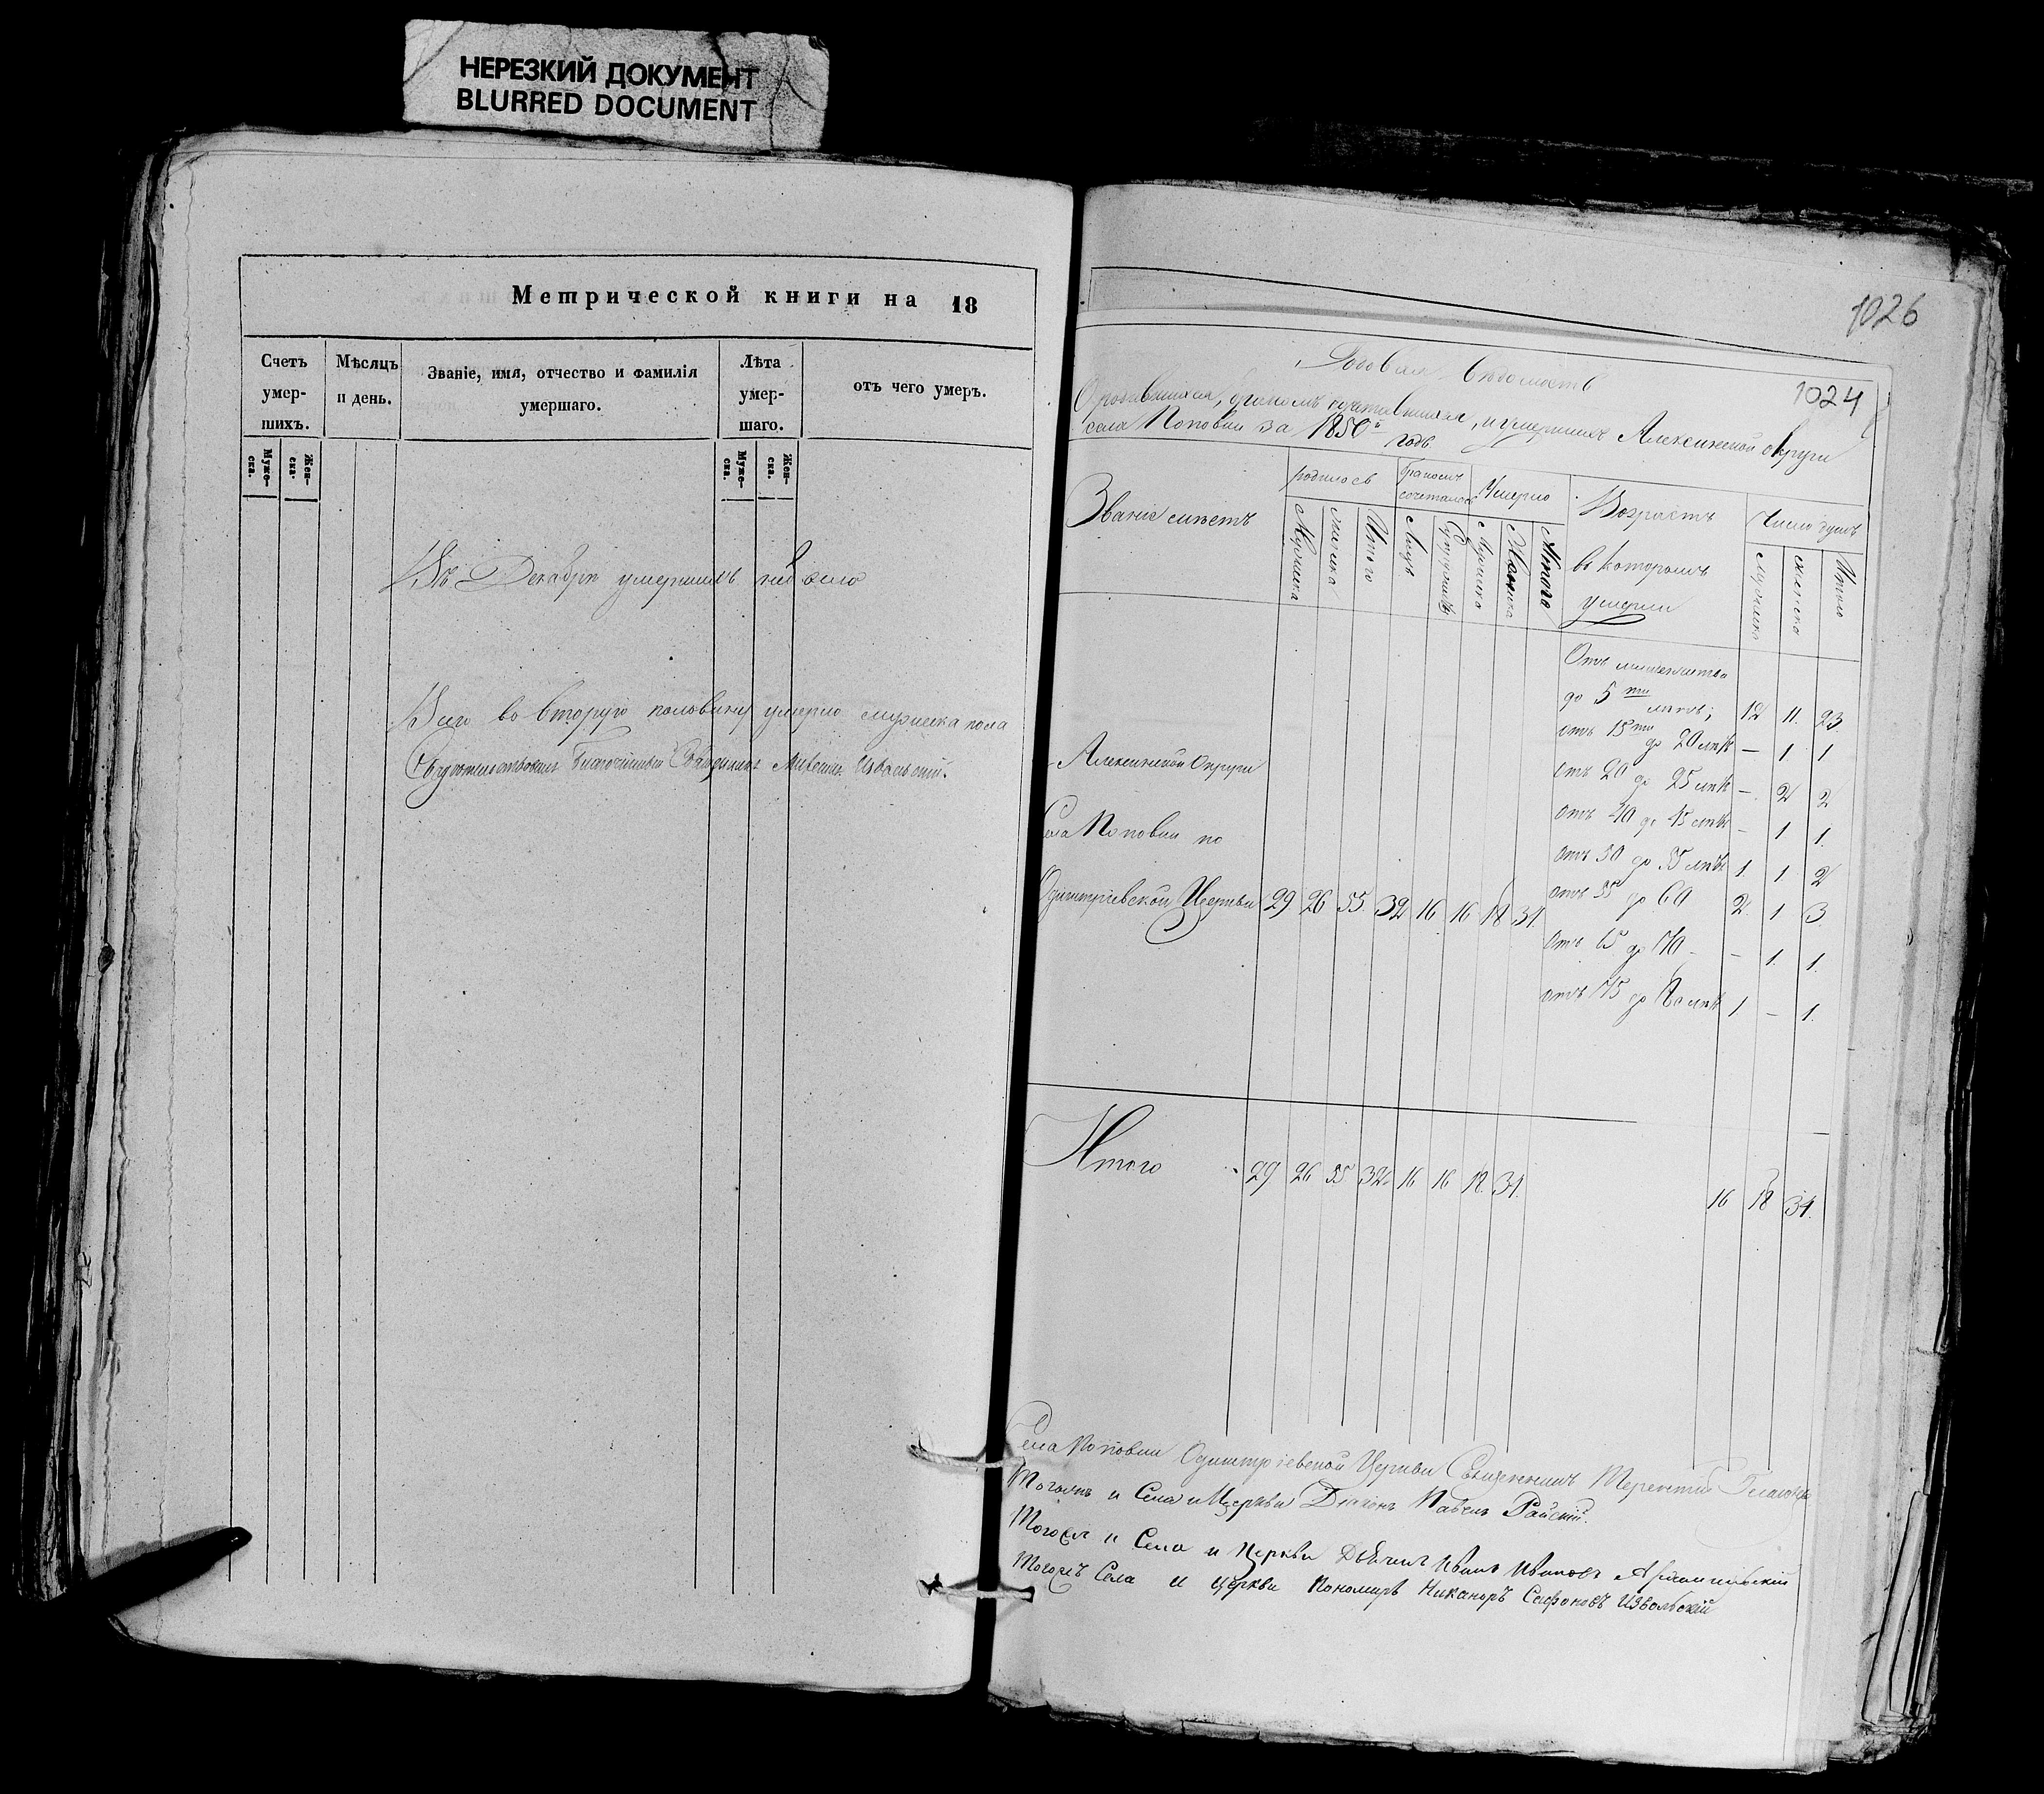 НЕРЕЗКИЙ ДОКУМЕНТ
BLURRED DOCUMENT
Метрической книги на 18
Счетъ умер-шихъ.
Мѣсяцъ и день.
Званіе, имя, отчество и фамилія умершаго.
Лѣта умер-шаго.
отъ чего умеръ.
Муже-ска.
Жен-ска.
Муже-ска.
Жен-ска.
Въ Декабрѣ умершихъ не было
Всего во вторую половину умерло мужеска пола
Свидѣтельствовалъ Благочинный Священникъ
1026
1024
Годовая вѣдомость
О родившихся, бракомъ сочетавшихся, и умершихъ Алексинской округи
села Поповки за 1850й годъ
Званіе мѣстъ
родилось
бракомъ сочеталось
Умерло
Возрастъ
въ которомъ
умерли
Число душъ
Мужеска
женска
Итого
Лицъ
Супружествъ
Мужеска
Женска
Итого
мужеска
женска
Итого
Отъ младенчества
до 5ти лѣтъ; 12 11. 23.
отъ 15ти до 20 лѣтъ — 1 1
отъ 20 до 25 лѣтъ — 2 2
отъ 40 до 45 лѣтъ — 1 1.
отъ 50 до 55 лѣтъ 1 1 2
отъ 55 до 60 2. 1 3.
отъ 65 до 70 - — 1. 1.
отъ 75 до 80 лѣтъ 1 — 1.
Алексинской Округи
Села Поповки по
Одигитріевской Церкви 29 26 55. 32 16 16 18 34.
Итого 29 26 55 32 16 16 18. 34. 16 18 34.
Села Поповки Одигитріевской Церкви Священникъ Терентій
Тогожъ и Села и Церкви Діаконъ Павелъ Райскій.
Тогожъ и Села и Церкви Дьячикъ Иванъ Ивановъ
Тогожъ Села и Церкви Пономарь Никаноръ Сафоновъ Извольскій